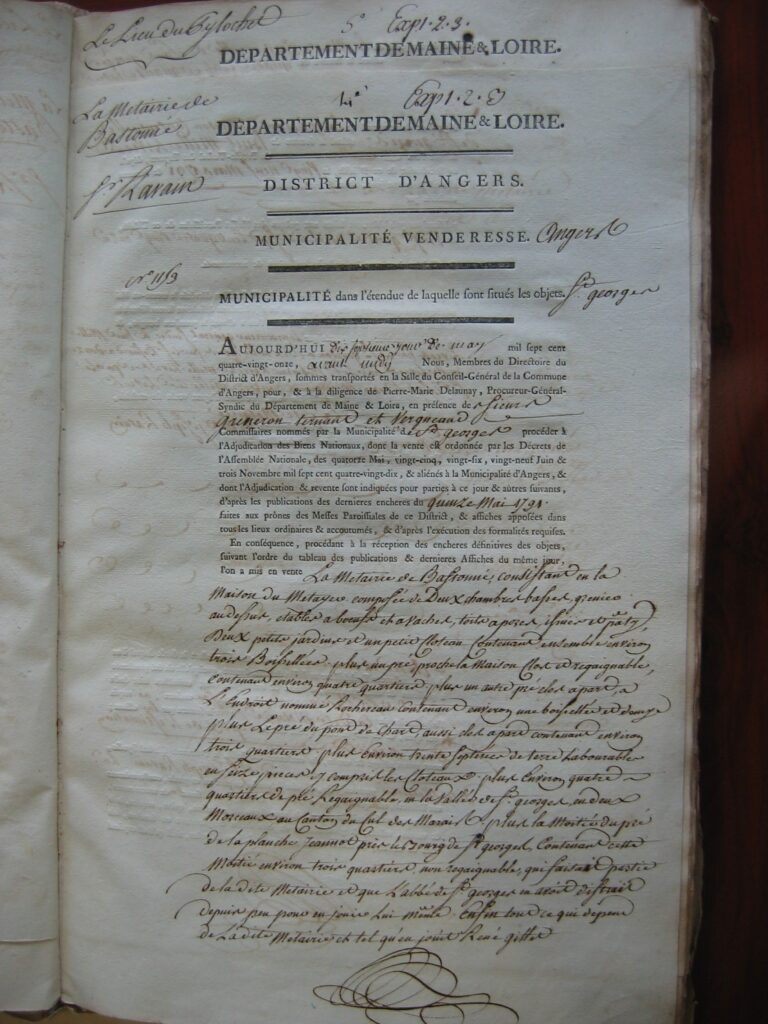 Le Lieu du
5e Exp 1. 2. 3.
DÉPARTEMENT DE MAINE & LOIRE.
La Metairie de
Bastonné
4e Exp 1. 2. 3
DÉPARTEMENT DE MAINE & LOIRE.
DISTRICT D'ANGERS.
MUNICIPALITÉ VENDERESSE. Angers
No. 1153
MUNICIPALITÉ dans l'étendue de laquelle sont situés les objets. St. georges
AUJOURD'HUI dix septieme jour de may mil sept cent
quatre-vingt-onze, avant midy Nous, Membres du Directoire du
District d'Angers, sommes transportés en la Salle du Conseil-Général de la Commune
d'Angers, pour, & à la diligence de Pierre-Marie Delaunay, Procureur-Général-
Syndic du Département de Maine & Loire, en présence de sieurs
et
Commissaires nommés par la Municipalité de St. georges procéder à
l'Adjudication des Biens Nationaux, dont la vente est ordonnée par les Décrets de
l'Assemblée Nationale, des quatorze Mai, vingt-cinq, vingt-six, vingt-neuf Juin &
trois Novembre mil sept cent quatre-vingt-dix, & aliénés à la Municipalité d'Angers, &
dont l'Adjudication & revente sont indiquées pour parties à ce jour & autres suivants,
d'après les publications des dernieres encheres du quinze Mai 1791.
faites aux prônes des Messes Paroissiales de ce District, & affiches apposées dans
tous les lieux ordinaires & accoutumés, & d'après l'exécution des formalités requises.
En conséquence, procédant à la réception des encheres définitives des objets,
suivant l'ordre du tableau des publications & dernieres Affiches du même jour,
l'on a mis en vente La Metairie de Bastonné, consistant en la
Maison du Metayer composée de Deux chambres basses grenier
au dessus, etables a boeufs et a vaches, toits a porcs, issües et
Deux petits jardins et un petit closeau Contenant ensemble environ
trois Boisselées plus un pré proche la Maison Clos et regaignable,
Contenant environ quatre quartiers plus un autre pré clos a part, a
L'Endroit nommé Rochereau contenant environ une boisselée et demye
plus Le pré du pont de chard aussi clos a part contenant environ
trois quartiers plus environ trente septerées de terre Labourable
en seize pieces y compris les Cloteaux plus Environ quatre
quartiers de pré Regaignable, en la Vallée de St. georges en deux
Morceaux au Canton du Cul des Marais plus la Moitié du pré
de la planche Jeannot près le Bourg de St georges Contenant cette
Moitié environ trois quartiers non regaignable, qui faisait partie
de la dite Metairie et que L'abbé de St georges en avoit distrait
depuis peu pour en jouir Lui même. Enfin tout ce qui dépend
de La dite Metairie et tel qu'en jouit René